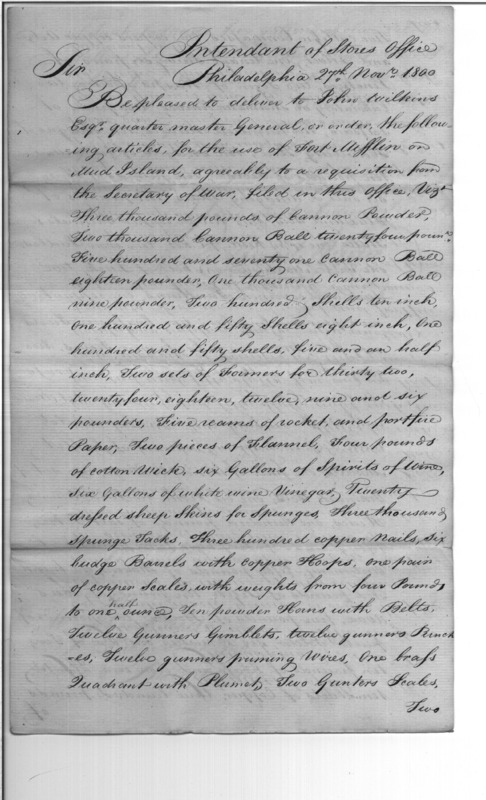 Intendant of Stores Office
Sir
Philadelphia 27th. Novr. 1800
Be pleased to deliver to John Wilkins
Esqr. quarter master General, or order, the follow-
ing articles, for the use of Fort Mifflin on
Mud Island, agreeably to a requisition from
the Secretary of War, filed in this Office, Vizt
Three thousand pounds of Cannon Powder,
Two thousand Cannon Ball twentyfour poundr.
Five hundred and seventy one Cannon Ball
eighteen pounder, One thousand Cannon Ball
nine pounder, Two hundred Shells ten inch,
One hundred and fifty Shells eight inch, One
hundred and fifty shells, five and an half
inch, Two sets of Formers for thirty two,
twentyfour, eighteen, twelve, nine and six
pounders, Five reams of rocket, and portfire
Paper, Two pieces of Flannel, Four pounds
of cotton Wick, six Gallons of Spirits of Wine,
Six Gallons of white wine Vinegar, Twenty
dressed sheep Skins for Spunges, Three thousand
Spunge Tacks, Three hundred copper Nails, six
budge Barrels with copper Hoops, one pair
of copper Scales, with weights from four Pounds
to one half ounce, Ten powder Horns with Belts,
Twelve Gunners Gimblets, twelve gunners Punch
-es, Twelve gunners priming Wires, One brass
Quadrant with Plumet, Two Gunters Scales,
Two